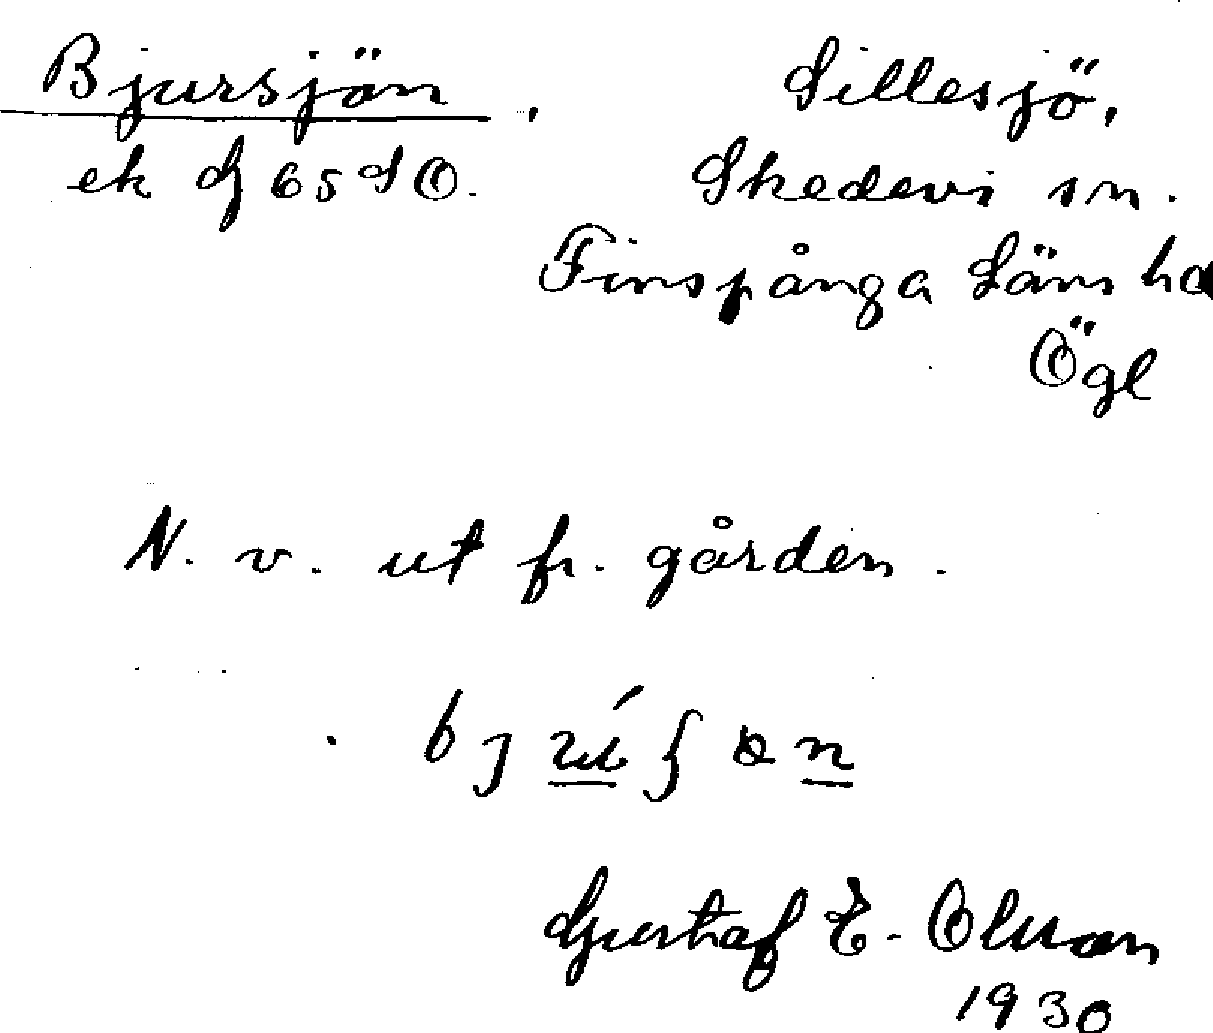 Bjursjön, Sillesjö,
ek G 65 SO. Skedevi sn.
Finspånga Läns hd
Ögl
N. v. ut fr. gården.
Gustaf E. Olsson
1930